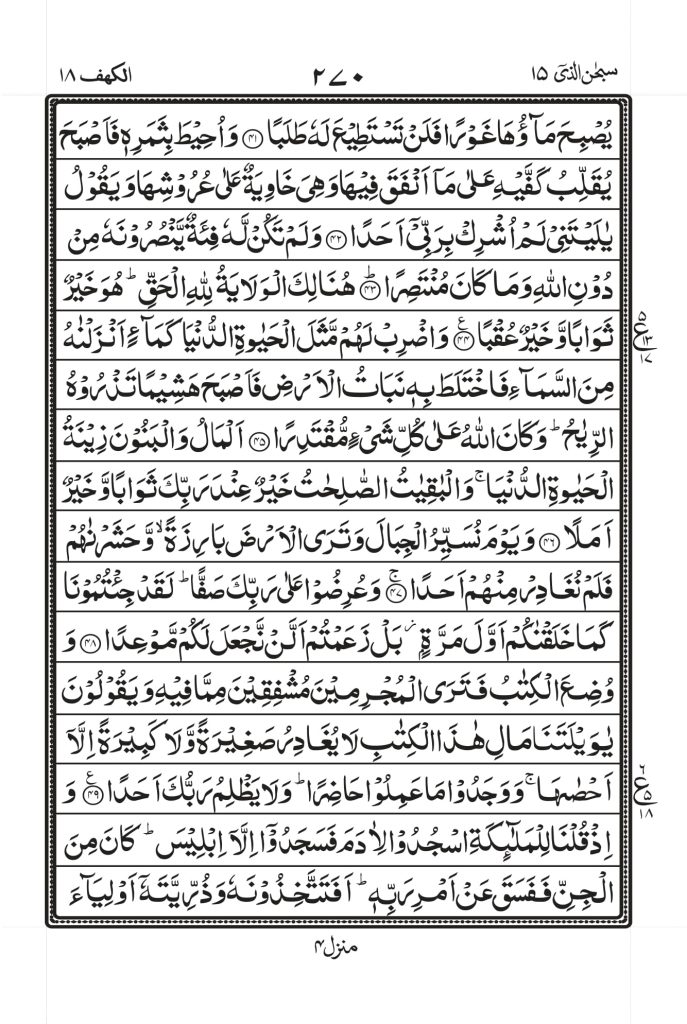 الكهف ١٨
٢٧٠
سبحٰن الذیٓ ١٥
يُصۡبِحَ مَآؤُهَا غَوۡرًا فَلَنۡ تَسۡتَطِيۡعَ لَهٗ طَلَبًا ﴿۴۱﴾ وَاُحِيۡطَ بِثَمَرِهٖ فَاَصۡبَحَ
يُقَلِّبُ كَفَّيۡهِ عَلٰى مَاۤ اَنۡفَقَ فِيۡهَا وَهِىَ خَاوِيَةٌ عَلٰى عُرُوۡشِهَا وَيَقُوۡلُ
يٰلَيۡتَنِىۡ لَمۡ اُشۡرِكۡ بِرَبِّىۡۤ اَحَدًا ﴿۴۲﴾ وَلَمۡ تَكُنۡ لَّهٗ فِئَةٌ يَّنۡصُرُوۡنَهٗ مِنۡ
دُوۡنِ اللّٰهِ وَمَا كَانَ مُنۡتَصِرًا ؕ﴿۴۳﴾ هُنَالِكَ الۡوَلَايَةُ لِلّٰهِ الۡحَقِّ‌ؕ هُوَ خَيۡرٌ
ثَوَابًا وَّخَيۡرٌ عُقۡبًا ﴿۴۴﴾ع وَاضۡرِبۡ لَهُمۡ مَّثَلَ الۡحَيٰوةِ الدُّنۡيَا كَمَآءٍ اَنۡزَلۡنٰهُ
مِنَ السَّمَآءِ فَاخۡتَلَطَ بِهٖ نَبَاتُ الۡاَرۡضِ فَاَصۡبَحَ هَشِيۡمًا تَذۡرُوۡهُ
الرِّيٰحُ‌ؕ وَكَانَ اللّٰهُ عَلٰى كُلِّ شَىۡءٍ مُّقۡتَدِرًا ﴿۴۵﴾ اَلۡمَالُ وَالۡبَنُوۡنَ زِيۡنَةُ
الۡحَيٰوةِ الدُّنۡيَا‌ۚ وَالۡبٰقِيٰتُ الصّٰلِحٰتُ خَيۡرٌ عِنۡدَ رَبِّكَ ثَوَابًا وَّخَيۡرٌ
اَمَلًا ﴿۴۶﴾ وَيَوۡمَ نُسَيِّرُ الۡجِبَالَ وَتَرَى الۡاَرۡضَ بَارِزَةً ۙ وَّحَشَرۡنٰهُمۡ
فَلَمۡ نُغَادِرۡ مِنۡهُمۡ اَحَدًا‌ ۚ﴿۴۷﴾ وَعُرِضُوۡا عَلٰى رَبِّكَ صَفًّا ؕ لَقَدۡ جِئۡتُمُوۡنَا
كَمَا خَلَقۡنٰكُمۡ اَوَّلَ مَرَّةٍ ۢ بَلۡ زَعَمۡتُمۡ اَلَّنۡ نَّجۡعَلَ لَكُمۡ مَّوۡعِدًا ﴿۴۸﴾ وَ
وُضِعَ الۡكِتٰبُ فَتَرَى الۡمُجۡرِمِيۡنَ مُشۡفِقِيۡنَ مِمَّا فِيۡهِ وَيَقُوۡلُوۡنَ
يٰوَيۡلَتَنَا مَالِ هٰذَا الۡكِتٰبِ لَا يُغَادِرُ صَغِيۡرَةً وَّلَا كَبِيۡرَةً اِلَّاۤ
اَحۡصٰٮهَا‌ ۚ وَوَجَدُوۡا مَا عَمِلُوۡا حَاضِرًا‌ ؕ وَلَا يَظۡلِمُ رَبُّكَ اَحَدًا ﴿۴۹﴾ع وَ
اِذۡ قُلۡنَا لِلۡمَلٰٓئِكَةِ اسۡجُدُوۡا لِاٰدَمَ فَسَجَدُوۡۤا اِلَّاۤ اِبۡلِيۡسَؕ كَانَ مِنَ
الۡجِنِّ فَفَسَقَ عَنۡ اَمۡرِ رَبِّهٖؕ اَفَتَتَّخِذُوۡنَهٗ وَذُرِّيَّتَهٗۤ اَوۡلِيَآءَ
٥ ع ١٣ ١٧
٢ ع ٥ ١٨
منزل ۴